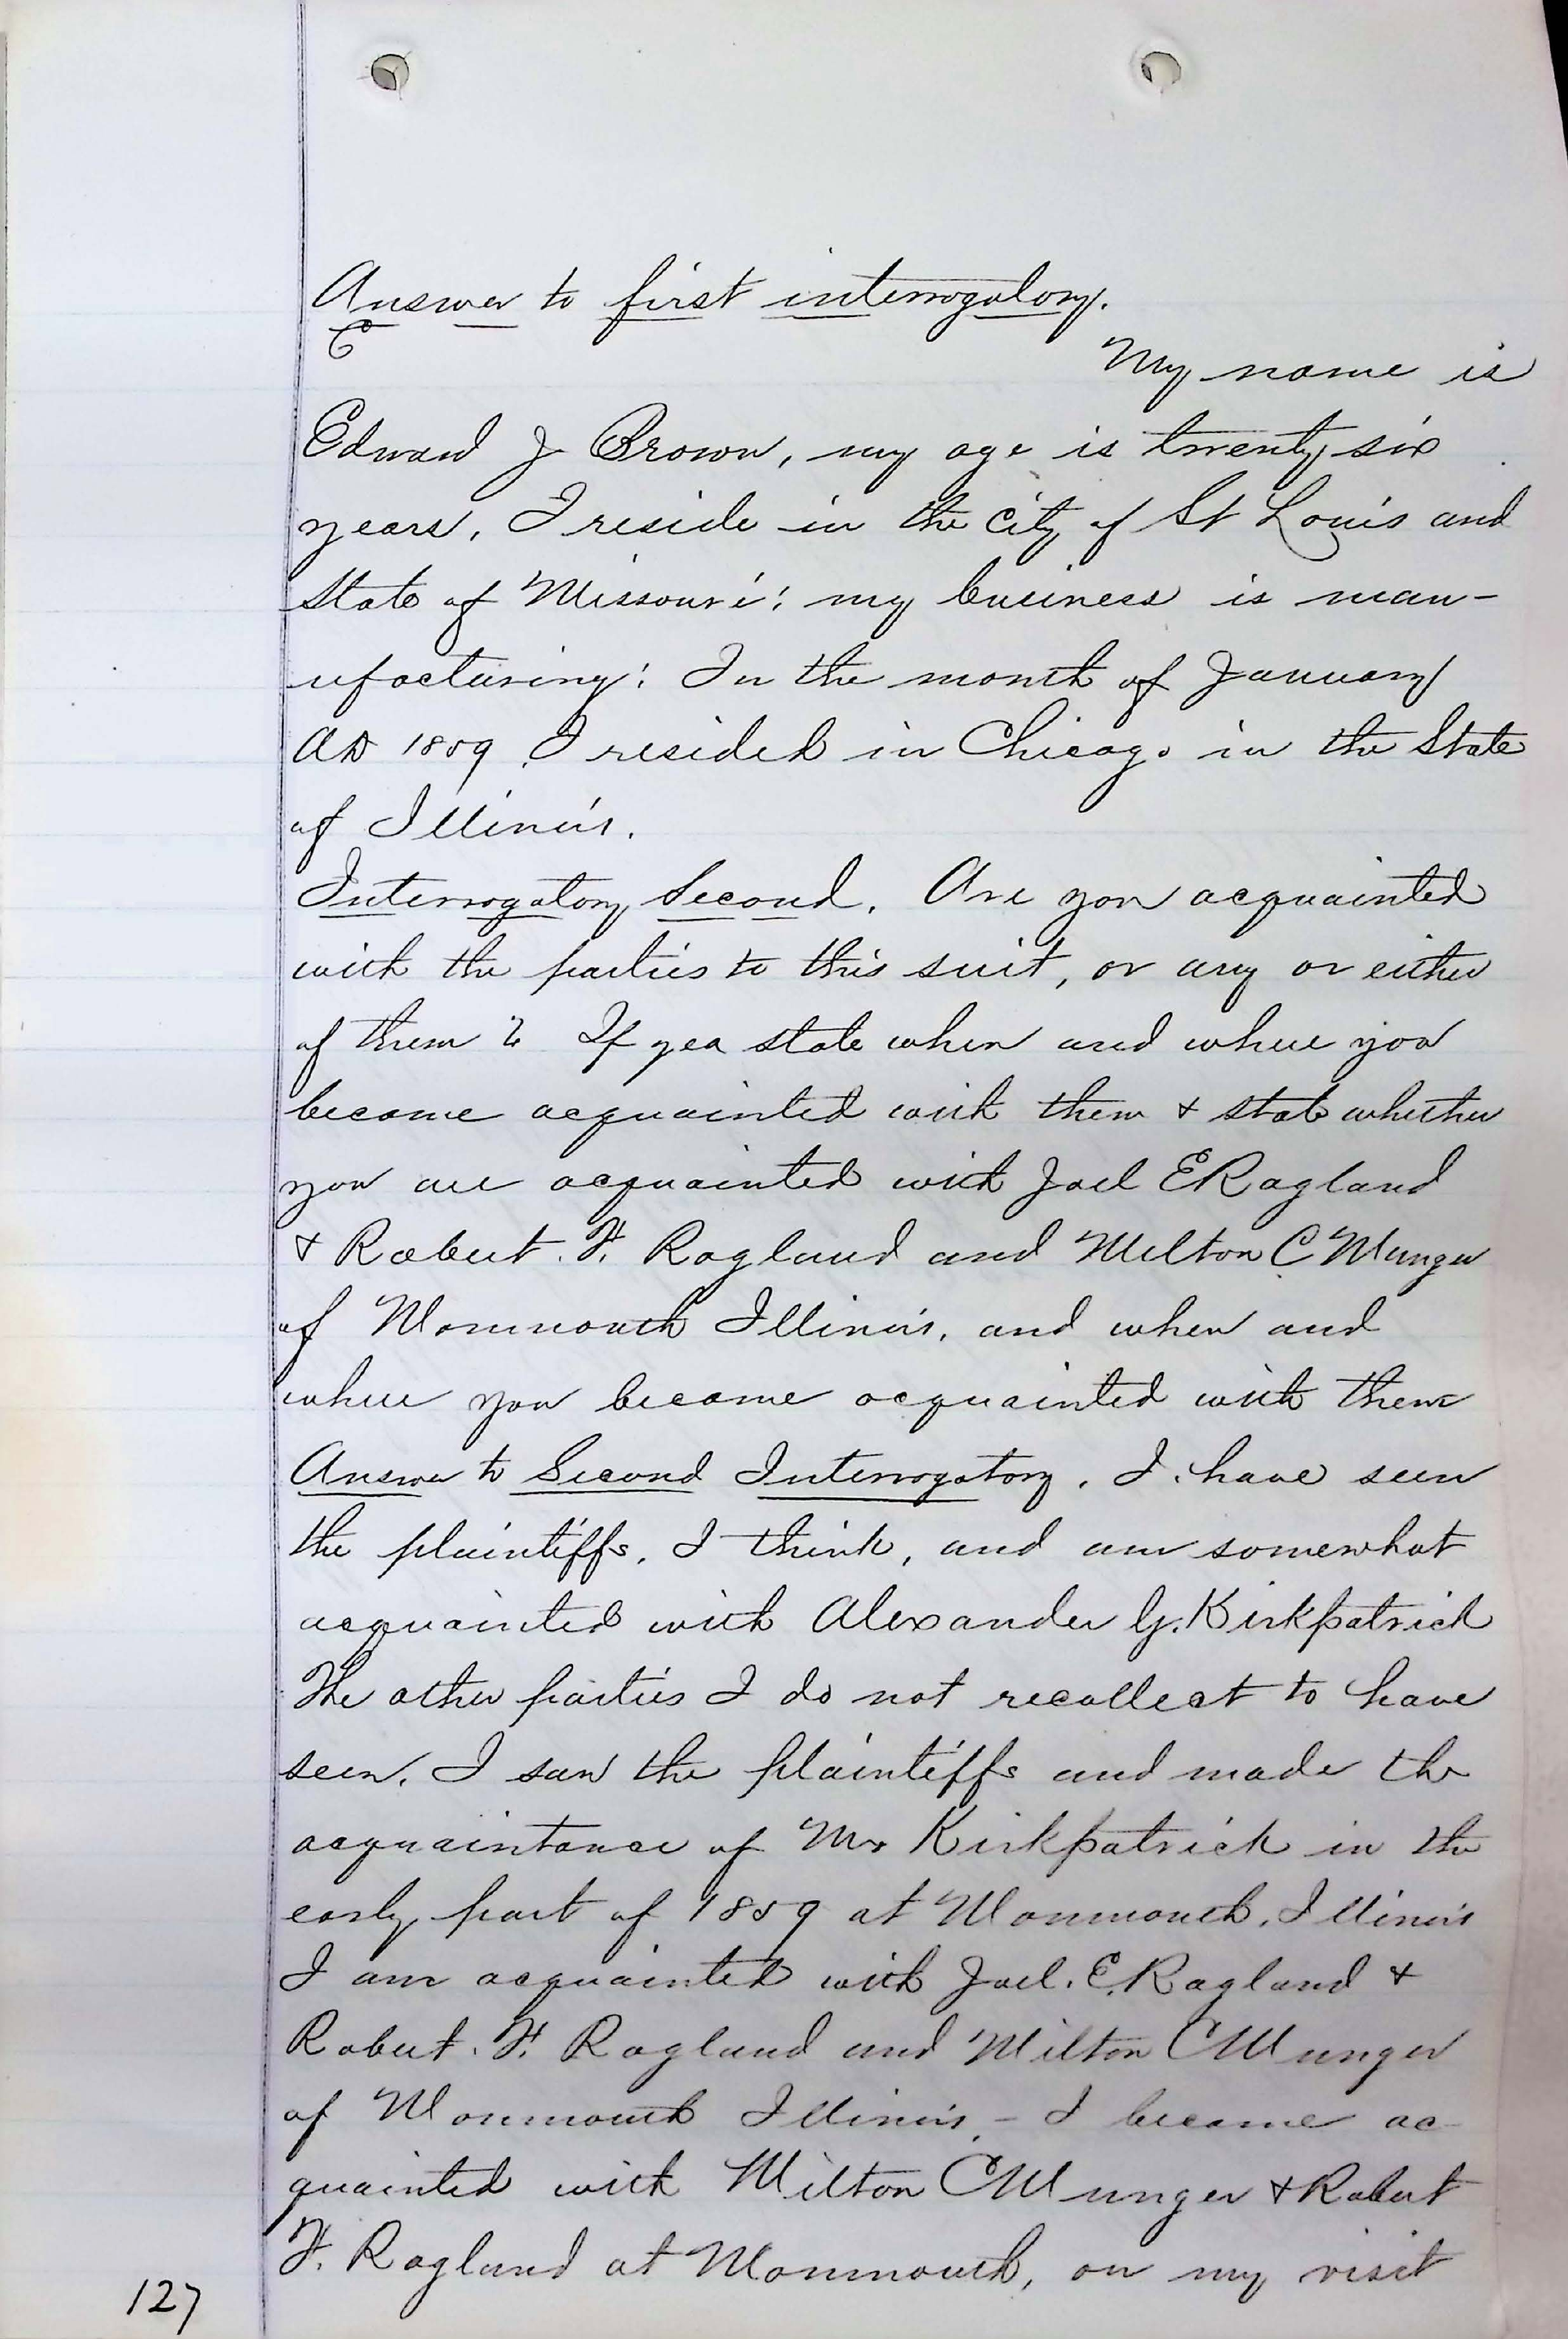 Answer to first interrogatory.
E
My name is
Edward J Brown, my age is twenty six
years, I reside in the City of St Louis and
State of Missouri; my business is man-
ufacturing; In the month of January
AD 1859 I resided in Chicago in the State
of Illinois.
Interrogatory Second. Are you acquainted
with the parties to this suit, or any or either
of them? If yea state when and where you
became acquainted with them & state whether
you are acquainted with Joel E Ragland
& Robert. F. Ragland and Milton C Munger
of Monmouth Illinois, and when and
where you became acquainted with them
Answer to Second Interrogatory. I have seen
the plaintiffs, I think, and am somewhat
acquainted with Alexander G. Kirkpatrick
The other parties I do not recollect to have
seen. I saw the plaintiffs and made the
acquaintance of Mr Kirkpatrick in the
early part of 1859 at Monmouth, Illinois
I am acquainted with Joel. E. Ragland &
Robert. F. Ragland and Milton C Munger
of Monmouth Illinois, - I became ac-
quainted with Milton C Munger & Robert
F. Ragland at Monmouth, on my visit
127